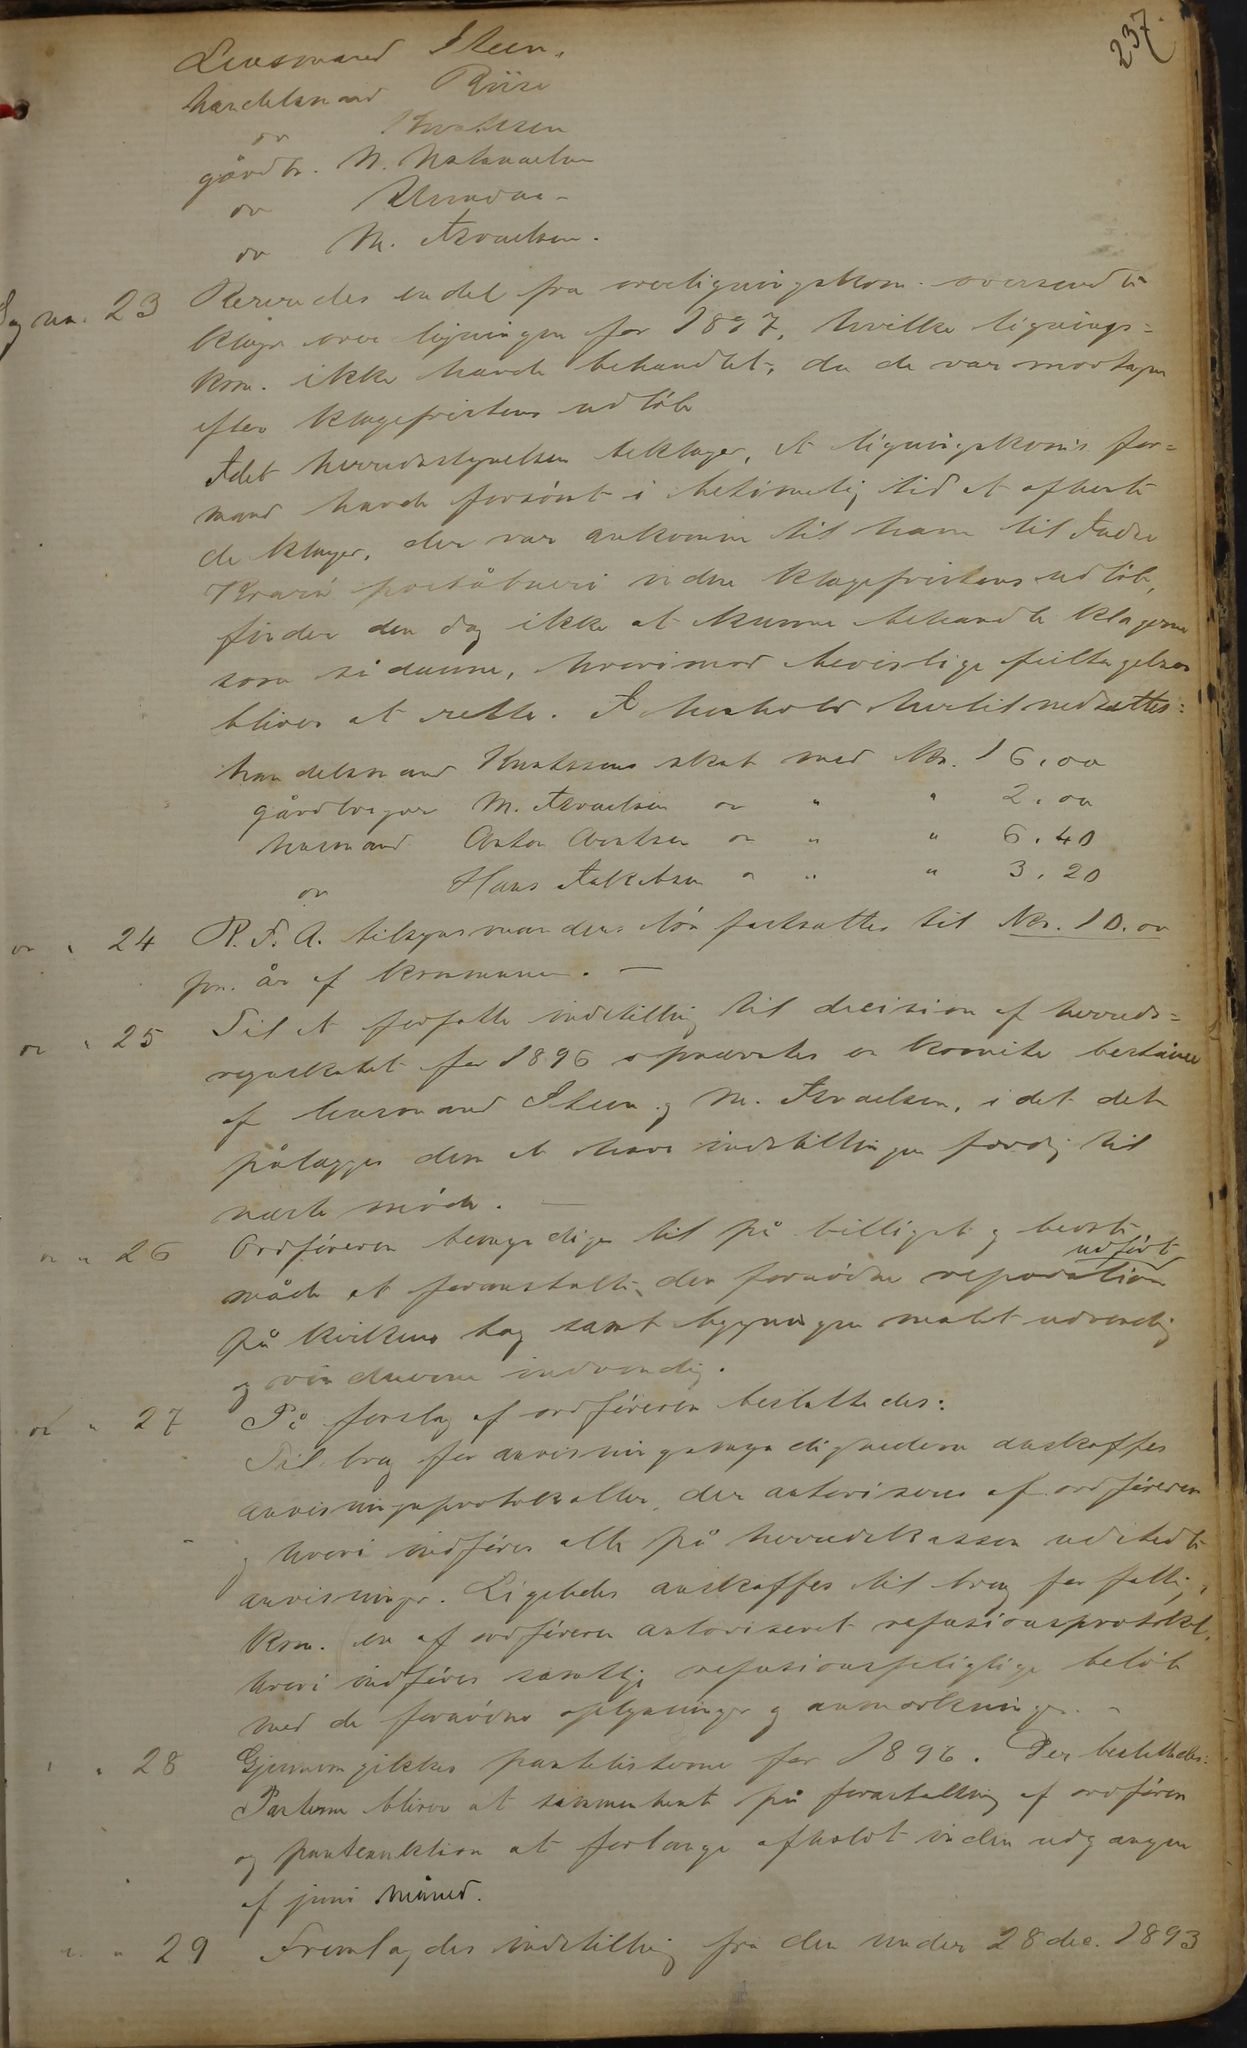 237.
Lensmand Steen.
handelsmand Riise
do Knutsen
gårdbr. N. Nathanaelsen
do
do M. Israelsen.
Sag no. 23 Revudes endel fra overligningskom. oversendte
klager over ligningen for 1897, hvilke lignings=
kom. ikke havde behandlet, da de var modtagne
efter klagefristens udløb
Idet herredsstyrelsen beklager, at ligningskomis. for=
mand havde forsømt i betimelig tid at afhente
de klager, der var ankomne til ham til Indre
Kvarø poståbneri inden klagefristens udløb,
finder den dog ikke at kunne behandle klagerne
som sådanne, hvorimod bevislige feiltagelser
bliver at rette. I henhold hertil nedsættes:
handelsmand Knutsens skat med Kr. 16.00
gårdbruger M. Israelsen do " " 2.00
husmand Anton Arntsen do " " 6.40
do Hans Jakobsen do " " 3.20
do " 24 R. F. A. tilsynsmandens løn fastsættes til Kr. 10.00
pr. år af kommunen. —
do " 25 Til at forfatte indstilling til decision af herreds=
regnskabet for 1896 opnævntes en komite bestående
af lensmand Steen og M. Israelsen, idet det
pålægges dem at have indstillingen færdig til
næste møde. —
do " 26 Ordføreren bemyndiges til på billigst og bedste
måde at foranstalte den fornødne reparation udført
på kirkens tag samt bygningen malet udvendig
og vinduerne indvendig.
do " 27 På forslag af ordføreren besluttedes:
Til brug for anvisningsmyndighederne anskaffes
anvisningsprotokoller, der autoriseres af ordføreren
og hvori indføres alle på herredskassen udstedte
anvisninger. Ligeledes anskaffes til brug for fattig=
kom. en af ordføreren autoriseret refusionsprotokol,
hvori indføres samtlige refusionspligtige beløb
med de fornødne oplysninger og anmærkninger. —
" " 28 Gjennemgikkes pantelisterne for 1896. Der besluttedes:
Panterne bliver at sammenhente på foranstaltning af ordføreren
og panteauktion at forlange afholdt inden udgangen
af juni måned.
" " 29 Fremlagdes indstilling fra den under 28 dec. 1893